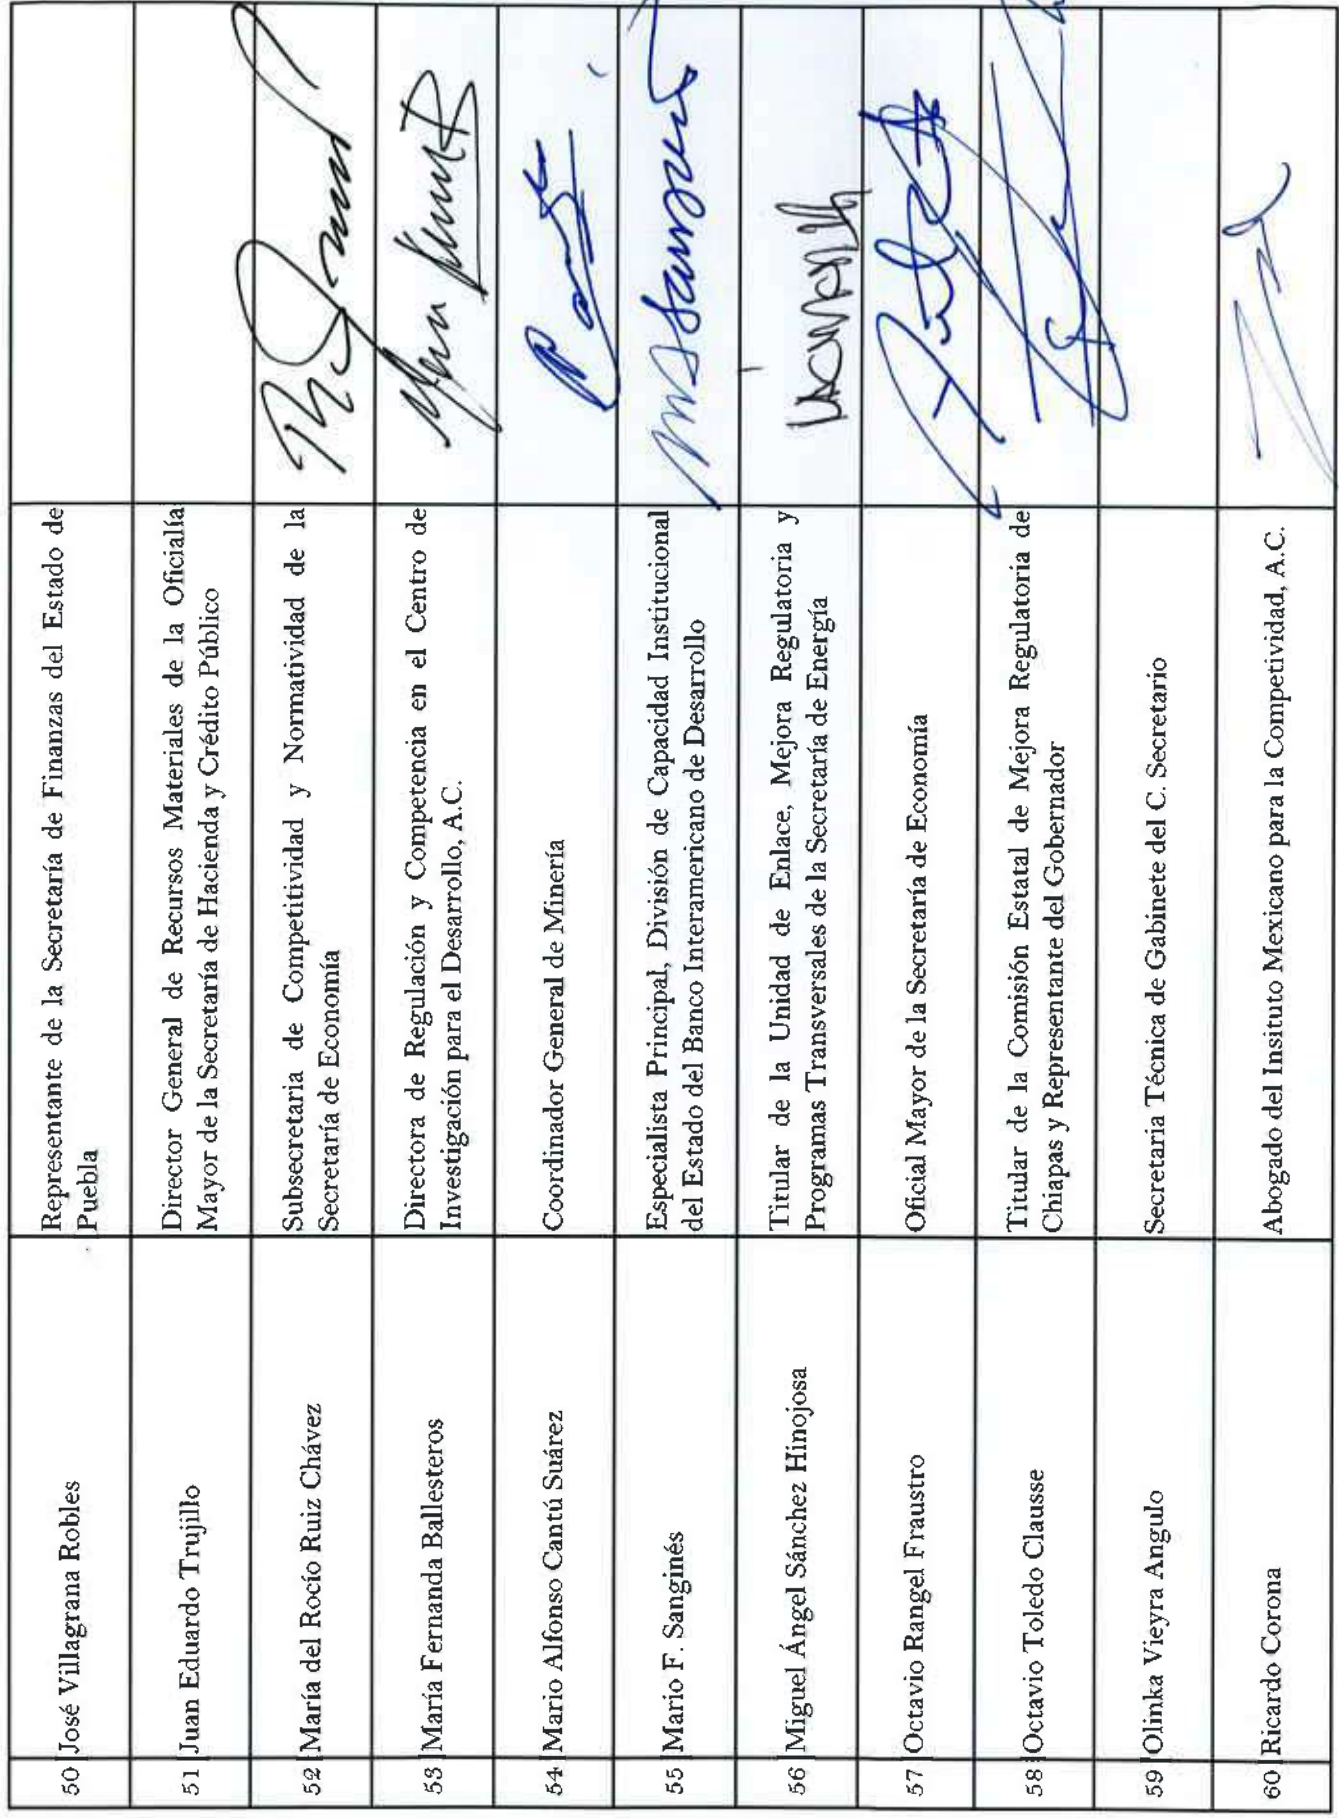 50 José Villagrana Robles
Representante de la Secretaría de Finanzas del Estado de
Puebla
51 Juan Eduardo Trujillo
Director General de Recursos Materiales de la Oficialía
Mayor de la Secretaría de Hacienda y Crédito Público
52 María del Rocío Ruiz Chávez
Subsecretaria de Competitividad y Normatividad de la
Secretaría de Economía
53 María Fernanda Ballesteros
Directora de Regulación y Competencia en el Centro de
Investigación para el Desarrollo, A.C.
54 Mario Alfonso Cantú Suárez
Coordinador General de Minería
55 Mario F. Sanginés
Especialista Principal, División de Capacidad Institucional
del Estado del Banco Interamericano de Desarrollo
56 Miguel Ángel Sánchez Hinojosa
Titular de la Unidad de Enlace, Mejora Regulatoria y
Programas Transversales de la Secretaría de Energía
57 Octavio Rangel Fraustro
Oficial Mayor de la Secretaría de Economía
58 Octavio Toledo Clausse
Titular de la Comisión Estatal de Mejora Regulatoria de
Chiapas y Representante del Gobernador
59 Olinka Vieyra Angulo
Secretaria Técnica de Gabinete del C. Secretario
60 Ricardo Corona
Abogado del Insituto Mexicano para la Competividad, A.C.